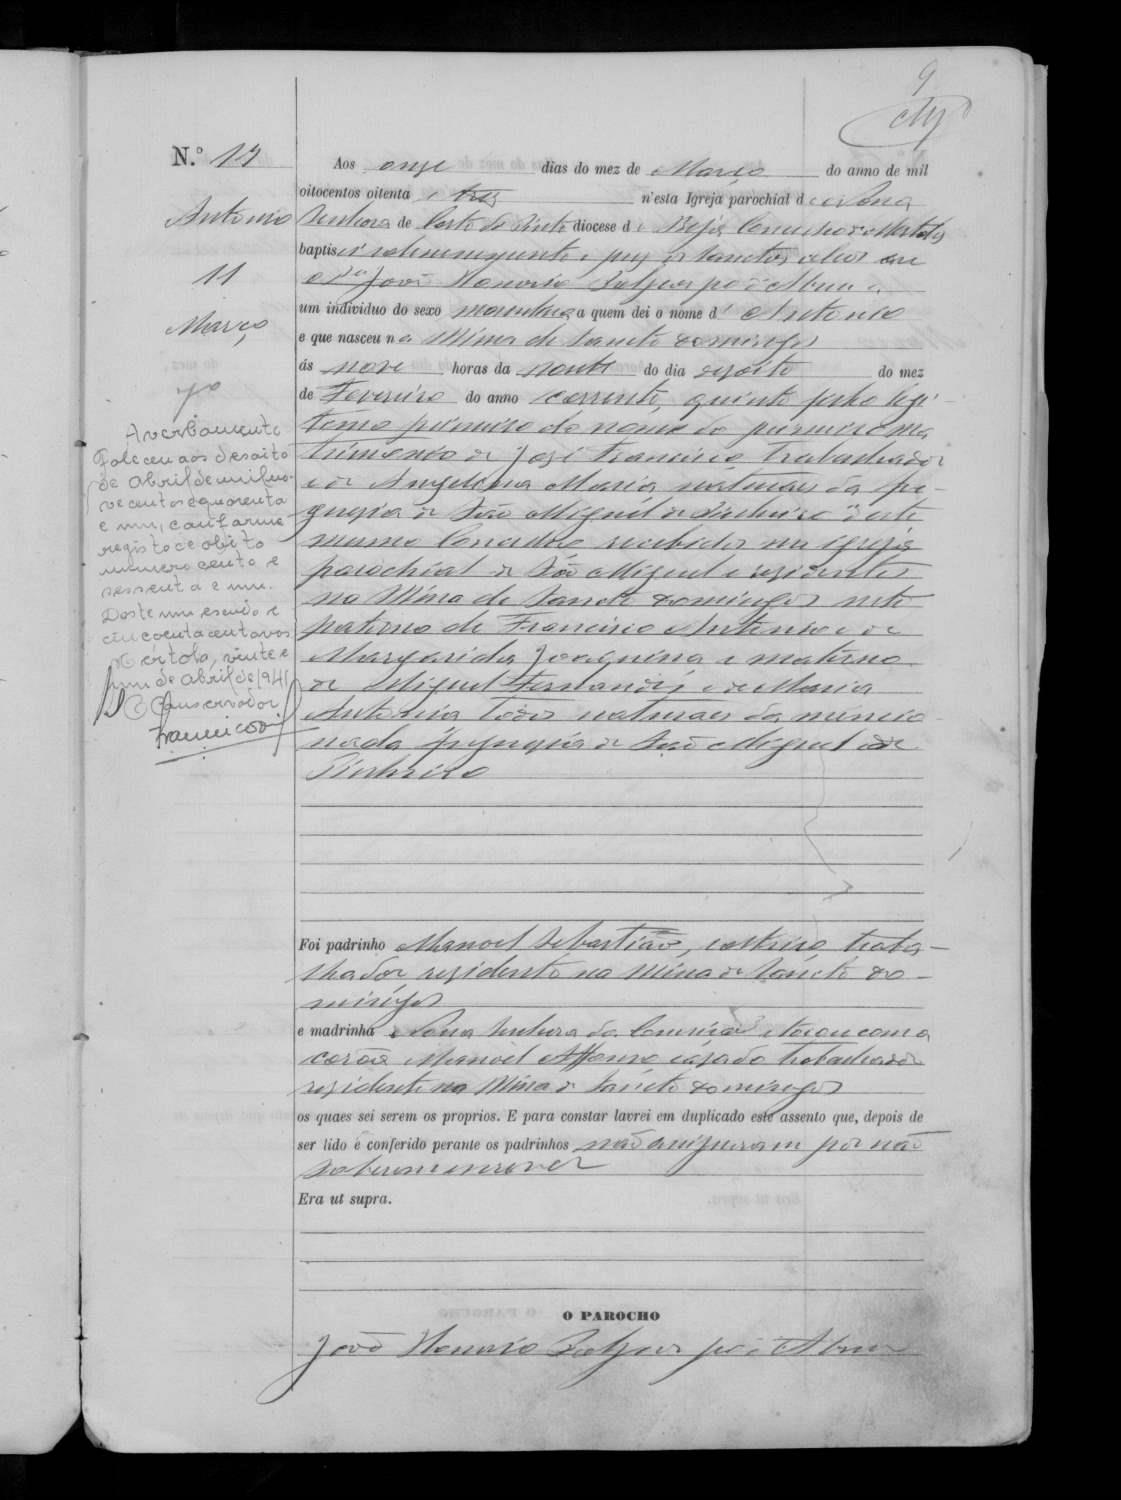 9
N.º 17
Antonio
11
Março
Averbamento
Faleceu aos desoito
de abril de mil no-
vecentos e quarenta
e um, conforme
registo de obito
numero cento e
sessenta e um.
Deste um escudo e
cincoenta centavos
Mértola, vinte e
um de abril de 1941
O Conservador
Aos onze dias do mez de Março do anno de mil
oitocentos oitenta e tres n'esta Igreja parochial de Nossa
Senhora de Corte do Pinto diocese de Beja Concelho de Mertola
baptisei solemnemente e puz os sanctos oleos eu
João Honorio Salgueiro d'Abreu a
um individuo do sexo masculino a quem dei o nome d' Antonio
e que nasceu na Mina de Sancto Domingos
ás nove horas da noute do dia desoito do mez
de Fevereiro do anno corrente, quinto filho legi-
timo primeiro do nome do primeiro ma
trimonio de José Francisco trabalhador
e de Angelina Maria naturaes da fre-
guesia de São Miguel de Pinheiro d'este
mesmo Concelho recebidos na igreja
parochial de São Miguel e residentes
na Mina de Sancto Domingos neto
paterno de Francisco Antonio e de
Margarida Joaquina e materno
de Miguel Fernandes e de Maria
Antonia todos naturaes da mencio-
nada freguesia de São Miguel de
Pinheiro
Foi padrinho Manoel Sebastião, solteiro, traba-
lhador residente na Mina de Sancto Do-
mingos
e madrinha Nossa Senhora da Conceição e tocou com a
corôa Manoel Affonso casado trabalhador
residente na Mina de Sancto Domingos
os quaes sei serem os proprios. E para constar lavrei em duplicado este assento que, depois de
ser lido e conferido perante os padrinhos não assignaram por não
saberem escrever
Era ut supra.
O PAROCHO
João Honorio d'Abreu